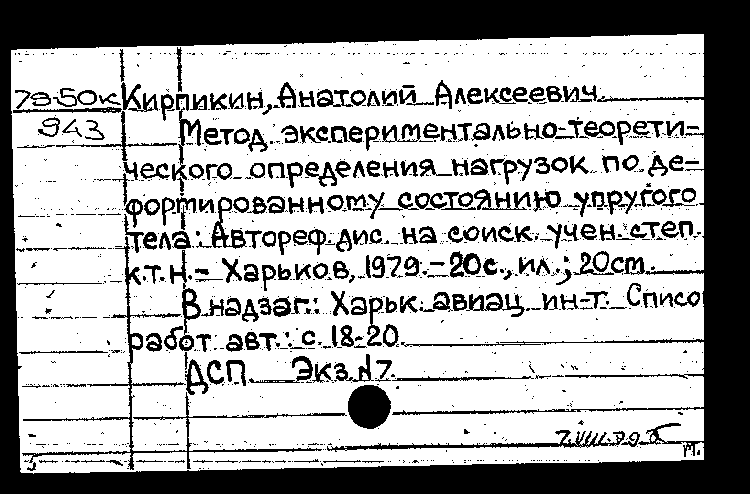 79-50к Кирпикин, Анатолий Алексеевич.
943 Метод экспериментально-теорети-
ческого определения нагрузок по де-
формированному состоянию упругого
тела: Автореф. дис. на соиск. учен. степ.
к.т.н. - Харьков, 1979. - 20с., ил.; 20см.
В надзаг.: Харьк. авиац. ин-т. Списо
работ авт.: с. 18-20.
ДСП. Экз. №7.
7.VIII.79
м.